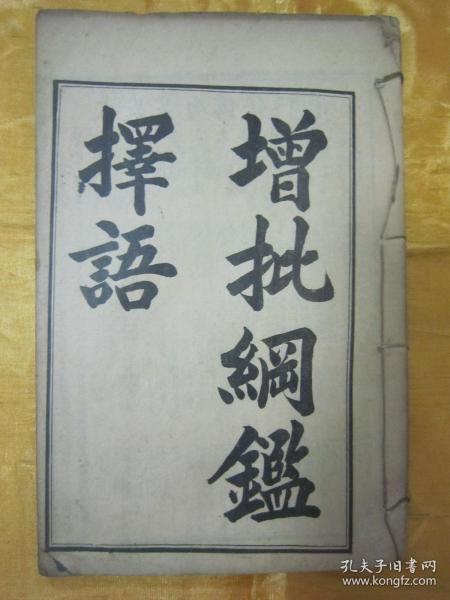 增批綱鑑
擇語
孔夫子旧书网
www.kongfz.com